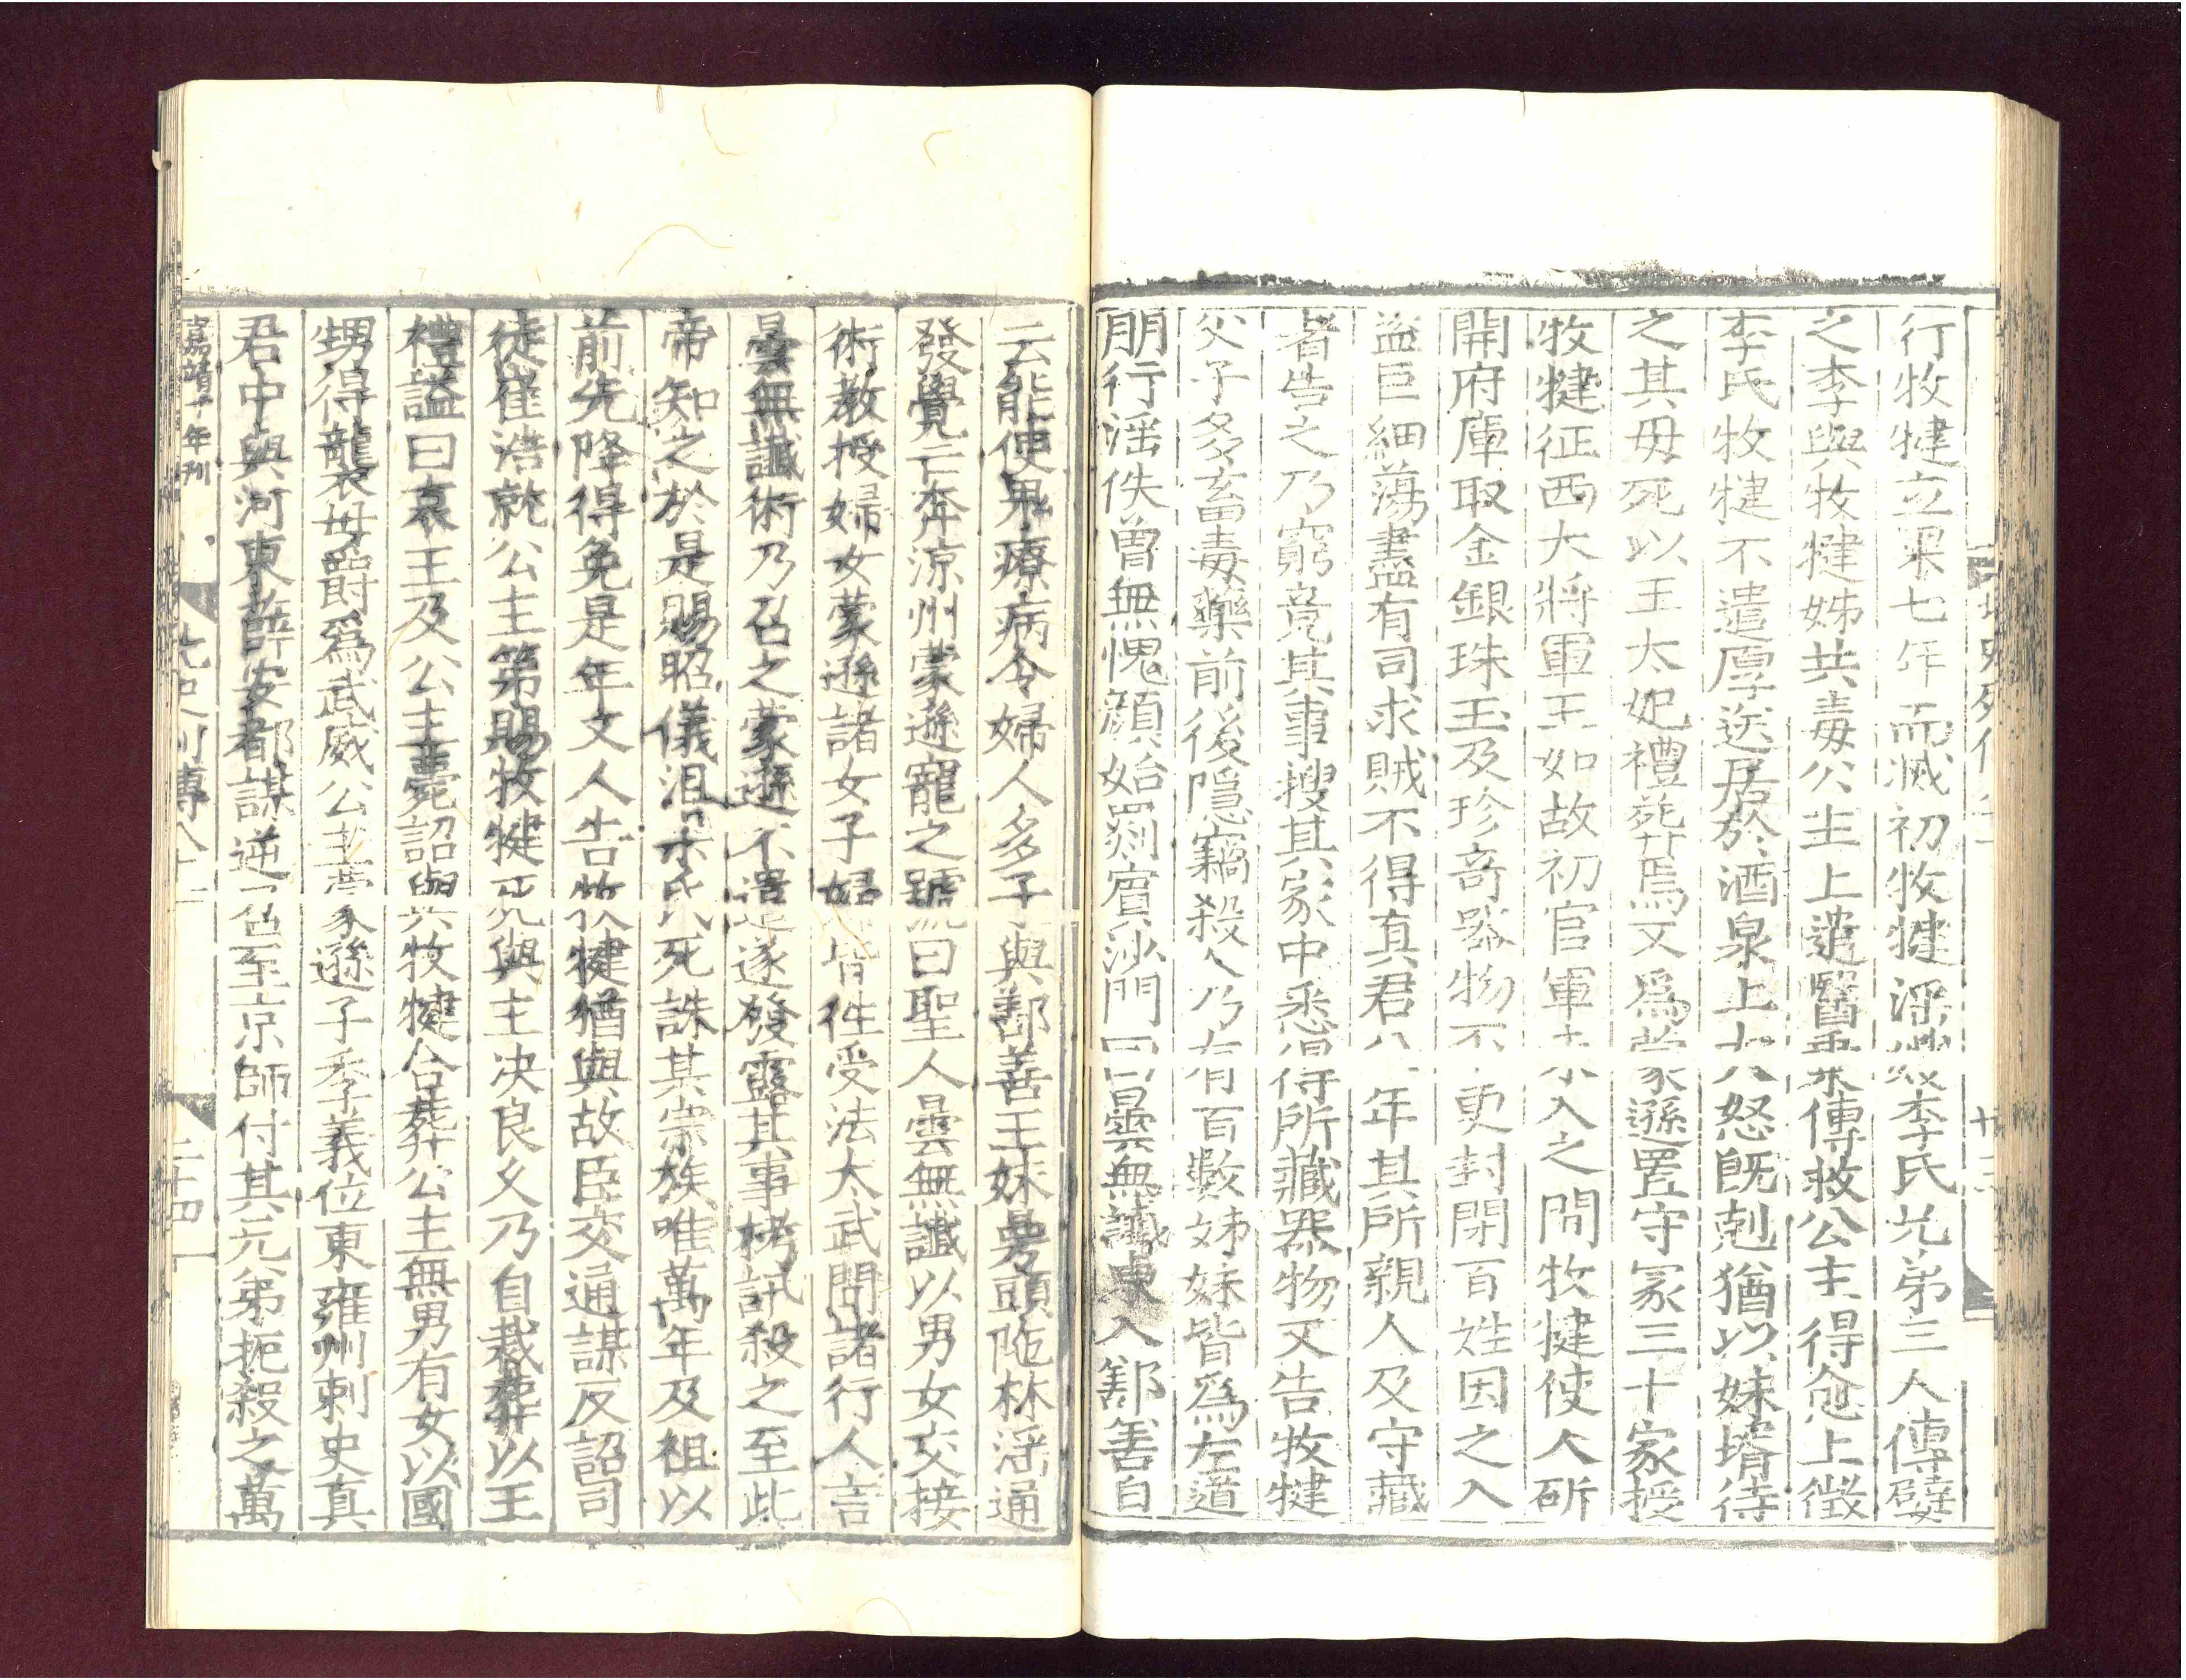 行牧犍立果七年而滅初牧犍淫嫂李氏兄弟三人傳嬖
之李與牧犍姊共毒公主上遣醫乗傳救公主得愈上徵
李氏牧犍不遣厚送居於酒泉上大怒既剋猶以妹壻待
之其母死以王太妃禮葬焉又爲蒙遜置守冢三十家授
牧犍征西大將軍王如故初官軍未入之間牧犍使人斫
開府庫取金銀珠玉及珍奇器物不更封閉百姓因之入
盜巨細蕩盡有司求賊不得真君八年其所親人及守藏
者告之乃窮竟其事搜其家中悉得所藏器物又告牧犍
父子多畜毒藥前後隱竊殺人乃有百數姊妹皆爲左道
朋行淫佚曾無愧顔始罽賓沙門曰曇無讖東入鄯善自
云能使鬼療病令婦人多子與鄯善王妹曼頭陁林淫通
發覺亡奔涼州蒙遜寵之號曰聖人曇無讖以男女交接
術教授婦女蒙遜諸女子婦皆往受法太武問諸行人言
曇無讖術乃召之蒙遜不遣遂發露其事拷訊殺之至此
帝知之於是賜昭儀沮渠氏死誅其宗族唯萬年及祖以
前先降得免是年文人告牧犍猶與故臣交通謀反詔司
徒崔浩就公主第賜牧犍死與主决良久乃自裁葬以王
禮謚曰哀王及公主薨詔與牧犍合葬公主無男有女以國
甥得襲母爵爲武威公主蒙遜子季義位東雍州刺史真
君中與河東薛安都謀逆召至京師付其兄弟扼殺之萬
嘉靖十年刊 北史列傳八十一 二十四